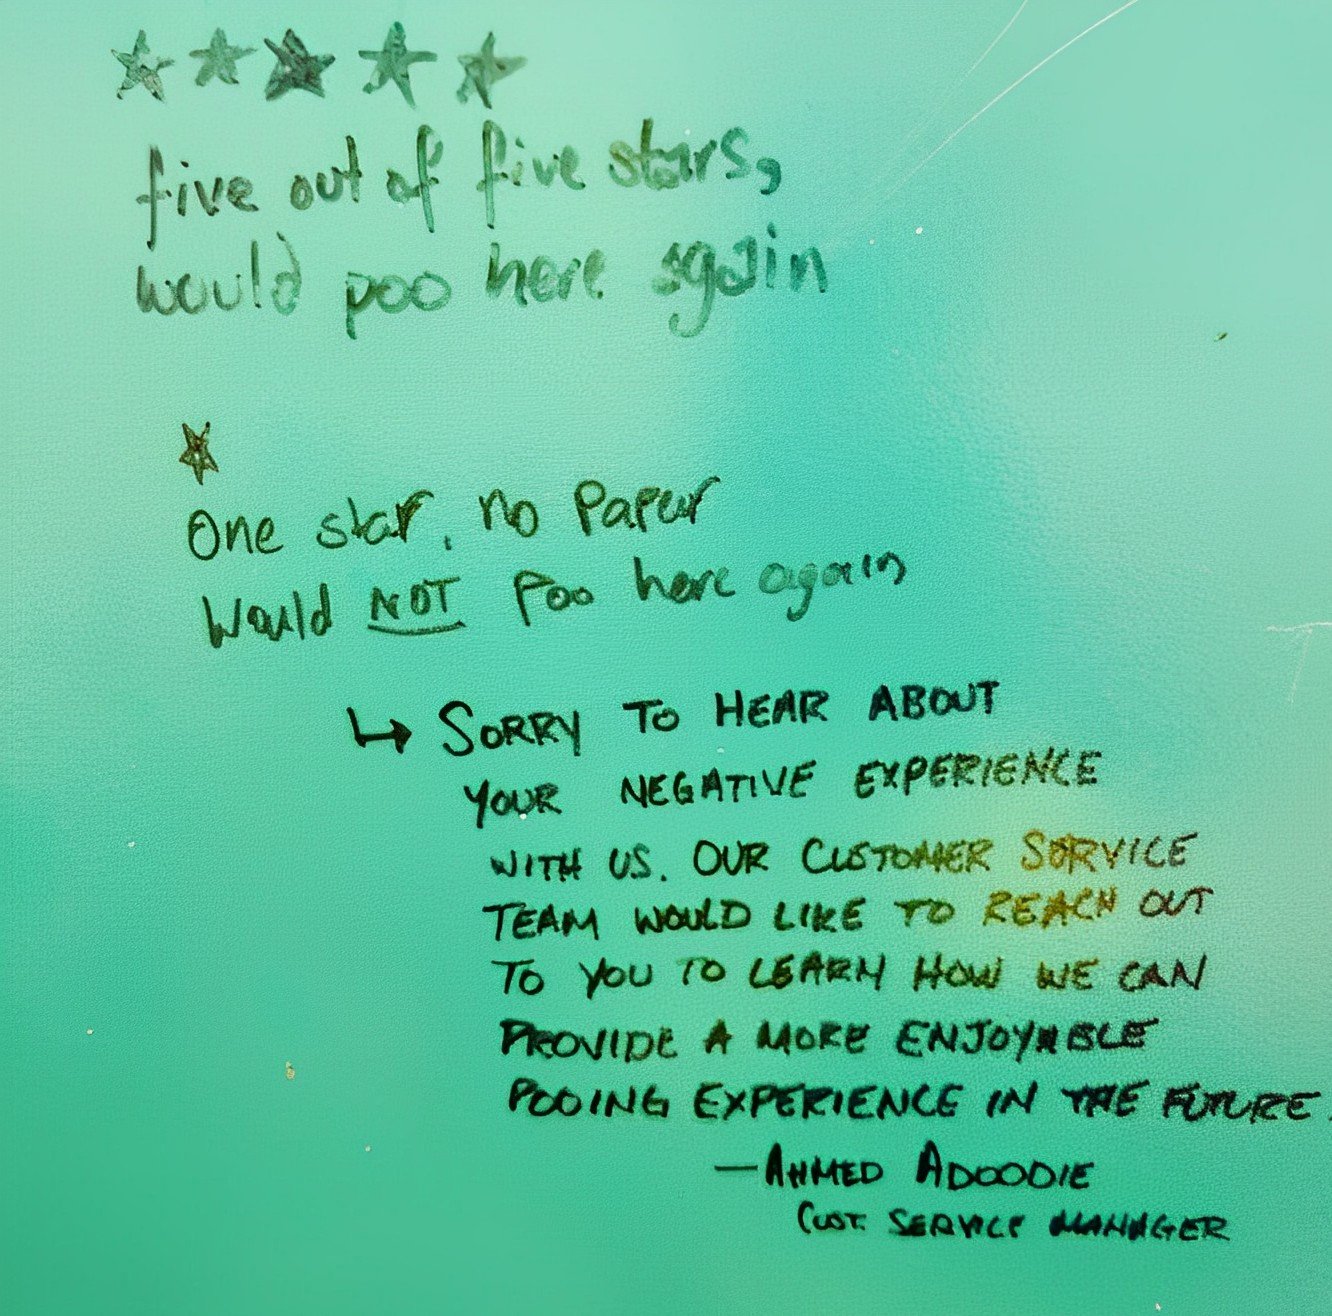 five out of five stars,
would poo here again
One star, no Paper
Would NOT Poo here again
↳ SORRY TO HEAR ABOUT
YOUR NEGATIVE EXPERIENCE
WITH US. OUR CUSTOMER SERVICE
TEAM WOULD LIKE TO REACH OUT
TO YOU TO LEARN HOW WE CAN
PROVIDE A MORE ENJOYABLE
POOING EXPERIENCE IN THE FUTURE.
—AHMED ADOODIE
CUST. SERVICE MANAGER